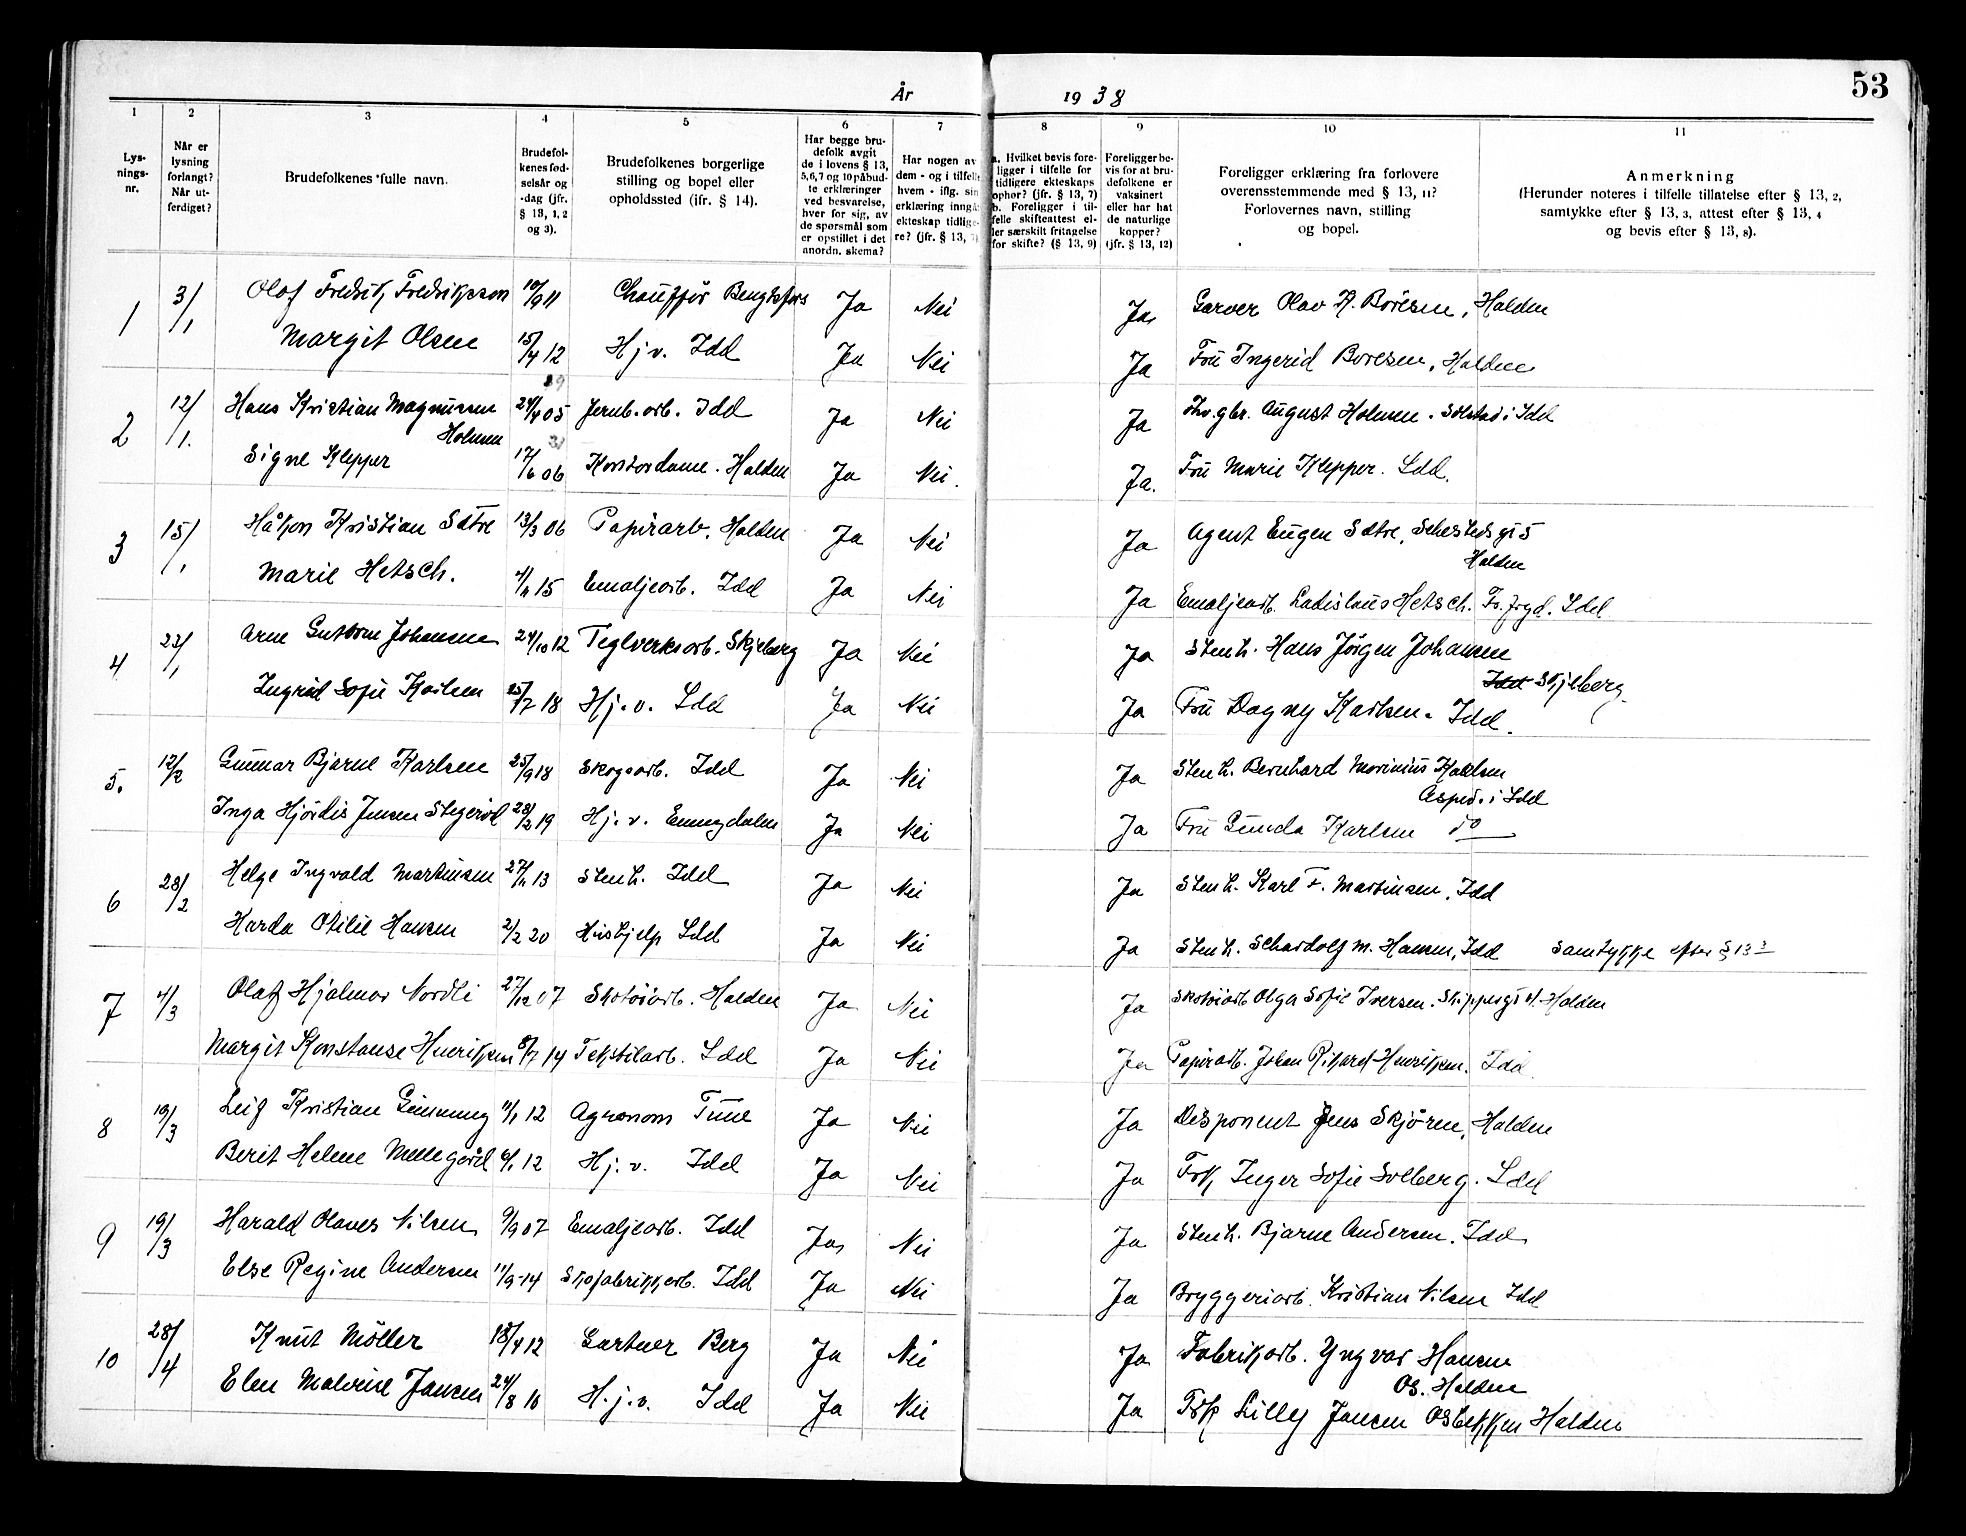 53
År 1938
1 2 3 4 5 6 7 8 9 10 11
Lys-
nings-
nr.
Når er
lysning
forlangt?
Når ut-
ferdiget?
Brudefolkenes fulle navn.
Brudefol-
kenes fød-
selsår og
-dag (jfr.
§ 13, 1, 2
og 3).
Brudefolkenes borgerlige
stilling og bopel eller
opholdssted (ifr. § 14).
Har begge bru-
defolk avgit
de i lovens § 13,
5, 6, 7 og 10 påbud-
te erklæringer
ved besvarelse,
hver for sig, av
de spørsmål som
er opstillet i det
anordn. skema?
Har nogen av
dem - og i tilfelle
hvem - iflg. sin
erklæring inngå
ekteskap tidlige-
re? (jfr. § 13, 7)
a. Hvilket bevis fore-
ligger i tilfelle for
tidligere ekteskaps
ophør? (jfr. § 13, 7)
b. Foreligger i til-
felle skifteattest el-
ler særskilt fritagelse
for skifte? (§ 13, 9)
Foreligger be-
vis for at bru-
defolkene er
vaksinert
eller har hat
de naturlige
kopper?
(jfr. § 13, 12)
Foreligger erklæring fra forlovere
overensstemmende med § 13, 11?
Forlovernes navn, stilling
og bopel.
Anmerkning
(Herunder noteres i tilfelle tillatelse efter § 13, 2,
samtykke efter § 13, 3, attest efter § 13, 4
og bevis efter § 13, 8).
1 3/1 Olaf Fredrik Fredriksson 10/9 11 Chauffør Bengtsfors Ja Nei Ja Garver Olav A. Børesen, Halden
Margit Olsen 15/4 12 Hj. v. Idd Ja Nei Ja Fru Ingerid Boresen, Halden
2 12/1. Hans Kristian Magnussen Holmen 24/4 05 Jernb. arb. Idd Ja Nei Ja Thv. gbr. August Holmen. Solstad i Idd
Signe Klepper 17/6 06 Kontordame. Halden Ja Nei. Ja. Fru Marie Klepper. Idd.
3 15/1 Håkon Kristian Sætre 13/3 06 Papirarb. Halden Ja Nei Ja Agent Eugen Sætre, Sehestedsgt 5
Halden
Marie Hetsch. 15 Emaljearb. Idd Ja Nei Ja Emaljearb. Ladislaus Hetsch. Idd
4 23/1 Arne Guttorm Johansen 24/10 12 Teglverksarb. Skjeberg Ja Nei Ja Stenh. Hans Jørgen Johansen
Idd Skjeberg.
Ingrid Sofie Karlsen 25/7 18 Hj. v. Idd Ja Nei Ja Fru Dagny Karlsen. Idd.
5. 12/2 Gunnar Bjarne Karlsen 25/9 18 Skogsarb. Idd Ja Nei Ja Stenh. Bernhard Marinius Karlsen
Asped. i Idd
Inga Hjørdis Jensen Stegerød 28/2 19 Hj. v. Enningdalen Ja Nei Ja Fru Gunda Karlsen do
6 28/2 Helge Ingvald Martinsen 27/11 13 Stenh. Idd Ja Nei Ja Stenh. Karl F. Martinsen, Idd
Harda Otilie Hansen 2/2 20 Hushjelp Idd Ja Nei Ja Stenh. Schardolf M. Hansen, Idd Samtykke efter § 13 3
7 4/3 Olaf Hjalmar Nordli 27/12 07 Skotøiarb. Halden Ja Nei Ja Skotøiarb Olga Sofie Iversen. Skippergt Halden
Margit Konstanse Henriksen 8/7 14 Tekstilarb. Idd Ja Nei Ja Papirarb. Johan Rikard Henriksen. Idd.
8 19/3 Leif Kristian Ginnung 11/1 12 Agronom Tune Ja Nei Ja Disponent Jens Skjøren, Halden
Berit Helene Mellegård 6/1 12 Hj. v. Idd Ja Nei Ja Frk Inger Sofie Solberg. Idd
9 19/3 Harald Olaves Nilsen 9/9 07 Emaljearb. Idd Ja Nei Ja Stenh. Bjarne Andersen. Idd
Else Regine Andersen 11/9-14 Skofabrikkarb. Idd Ja Nei Ja Bryggeriarb. Kristian Nilsen Idd
10 28/4 Knut Møller 18/4 12 Gartner Berg Ja Nei Ja Fabrikarb. Yngvar Hansen
Os. Halden
Elen Malvine Jansen 24/8 10 H. j. v. Idd Ja Nei Ja Frk Lilly Jansen Osbekken Halden